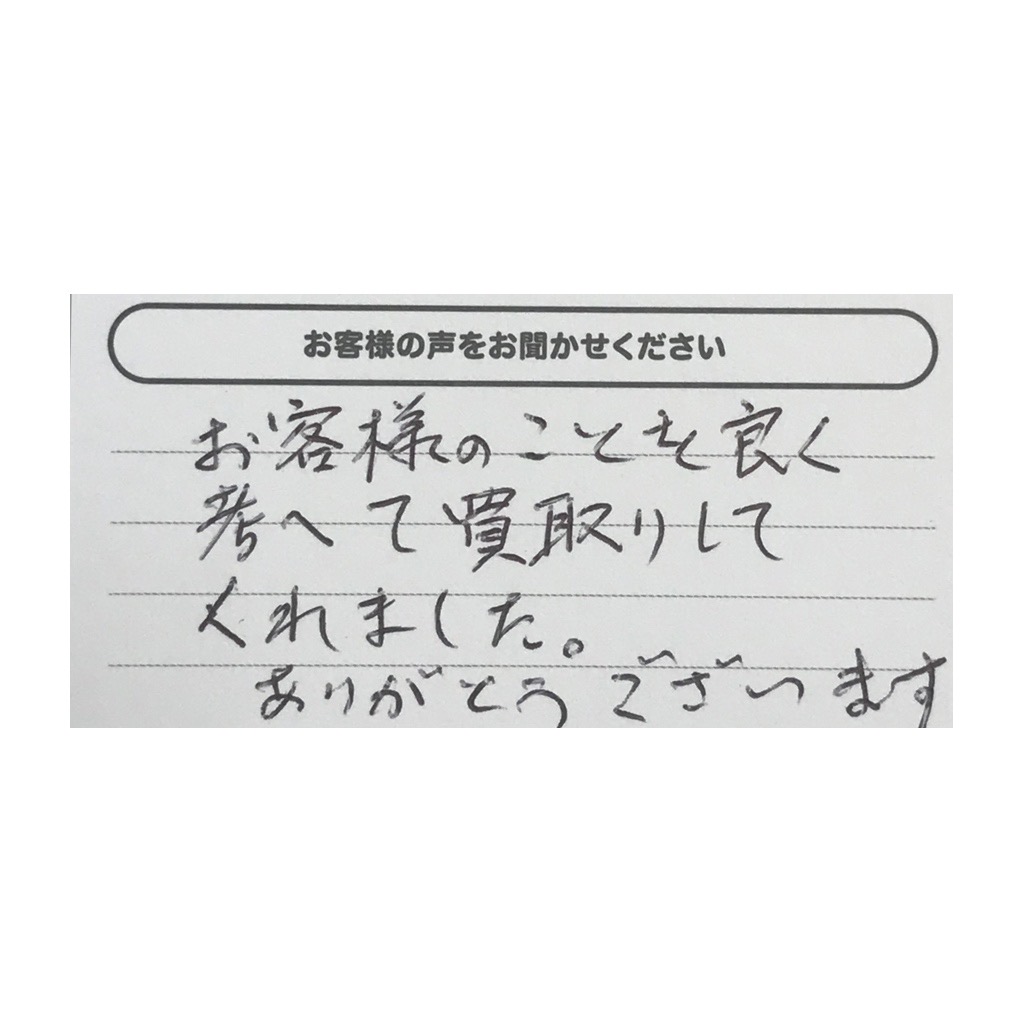 お客様の声をお聞かせください
お客様のことを良く
考へて買取りして
くれました。
ありがとうございます